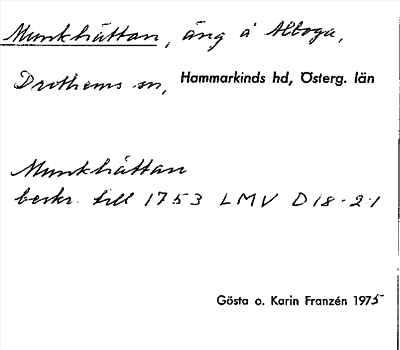 Munkhättan, äng å Alboga,
Drothems sn, Hammarkinds hd, Österg. län
Munkhättan
beskr. till 1753 LMV D18-2:1
Gösta o. Karin Franzén 1975